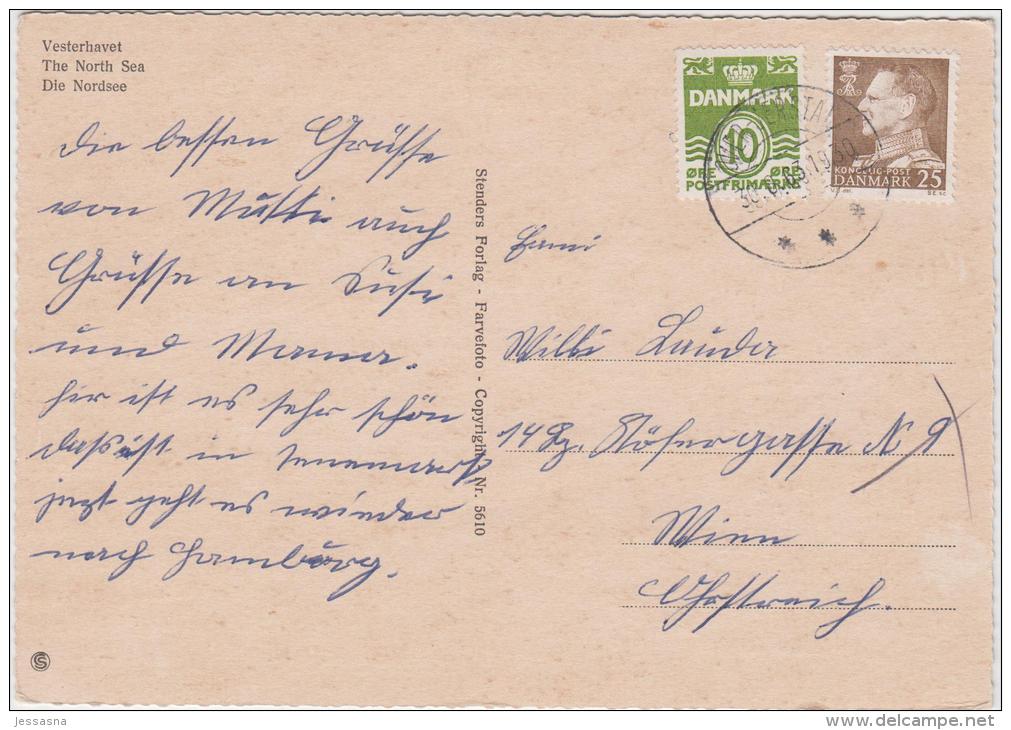 Vesterhavet
The North Sea
Die Nordsee
die besten Grüsse
von Mutti auch
Grüsse an Susi
und Mama.
hir ist es sehr schön
dass ist in
jezt geht es wieder
nach Hamburg.
Stenders Forlag - Farvefoto - Copyright Nr. 5610
DANMARK
10
ØRE ØRE
POSTFRIMÆRKE
KONGELIG-POST
DANMARK 25
Willi Lauda
gasse N 9
Wien
S
jessasna
www.delcampe.net